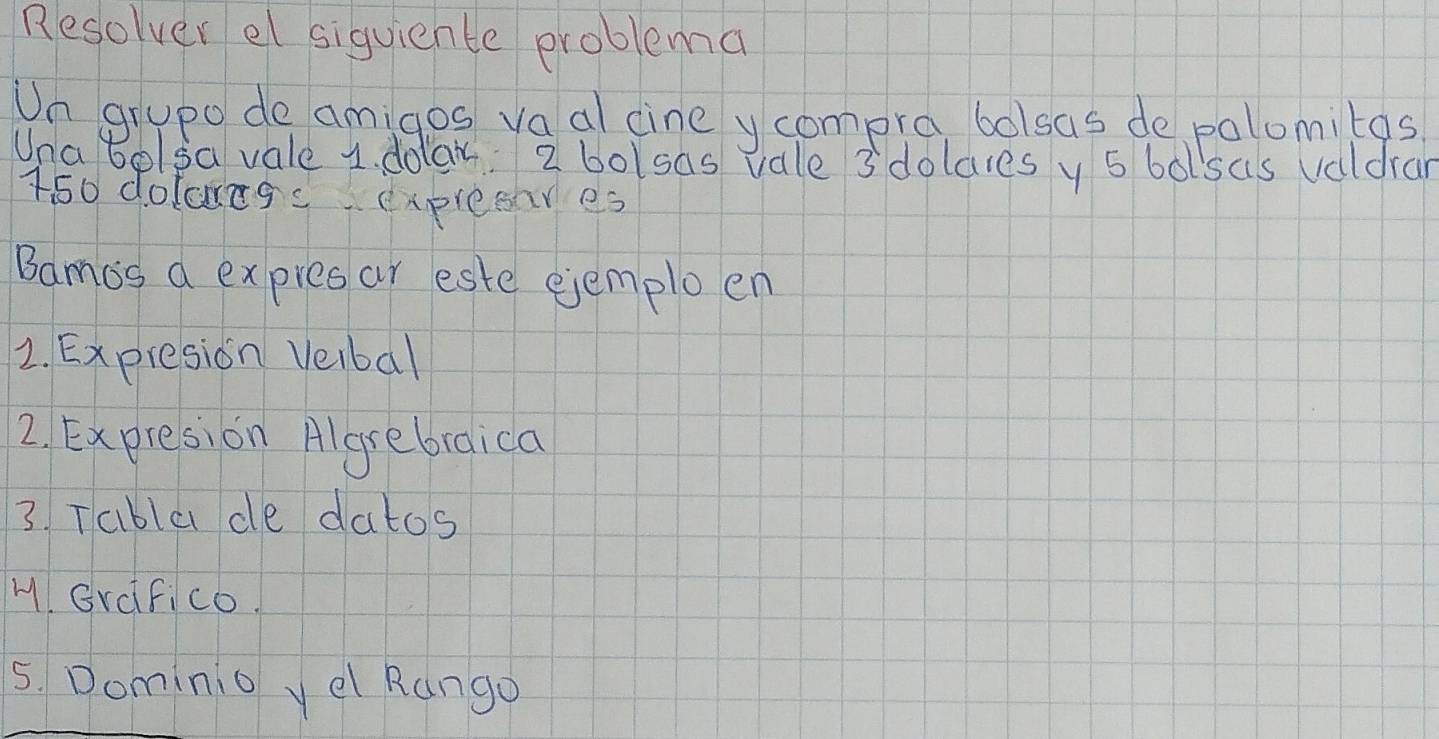 Resolver el siguiente problema
Un grupo de amigos va al cine y compra bolsas de palomitas.
Una bolsa vale 1. dolar. 2 bolsas vale 3 dolares y 5 bolsas valdran
7,50 expresar es
Bamos a expresar este ejemplo en
1. Expresión Verbal
2. Expresión Algrebraica
3. Tabla de datos
4. Gráfico.
5. Dominio y el Rango